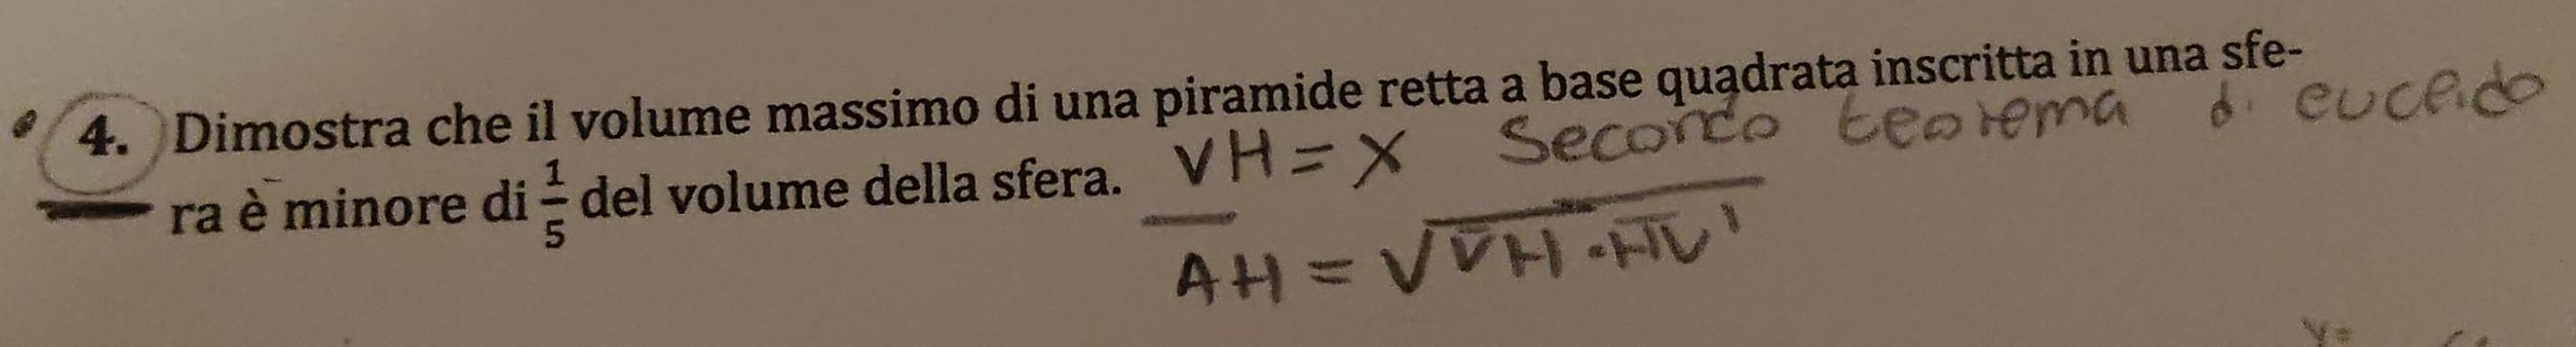 4. Dimostra che il volume massimo di una piramide retta a base quadrata inscritta in una sfe-
ra è minore di 1/5 del volume della sfera.
VH = x Secondo teorema di euclido
AH = √VH · HV'